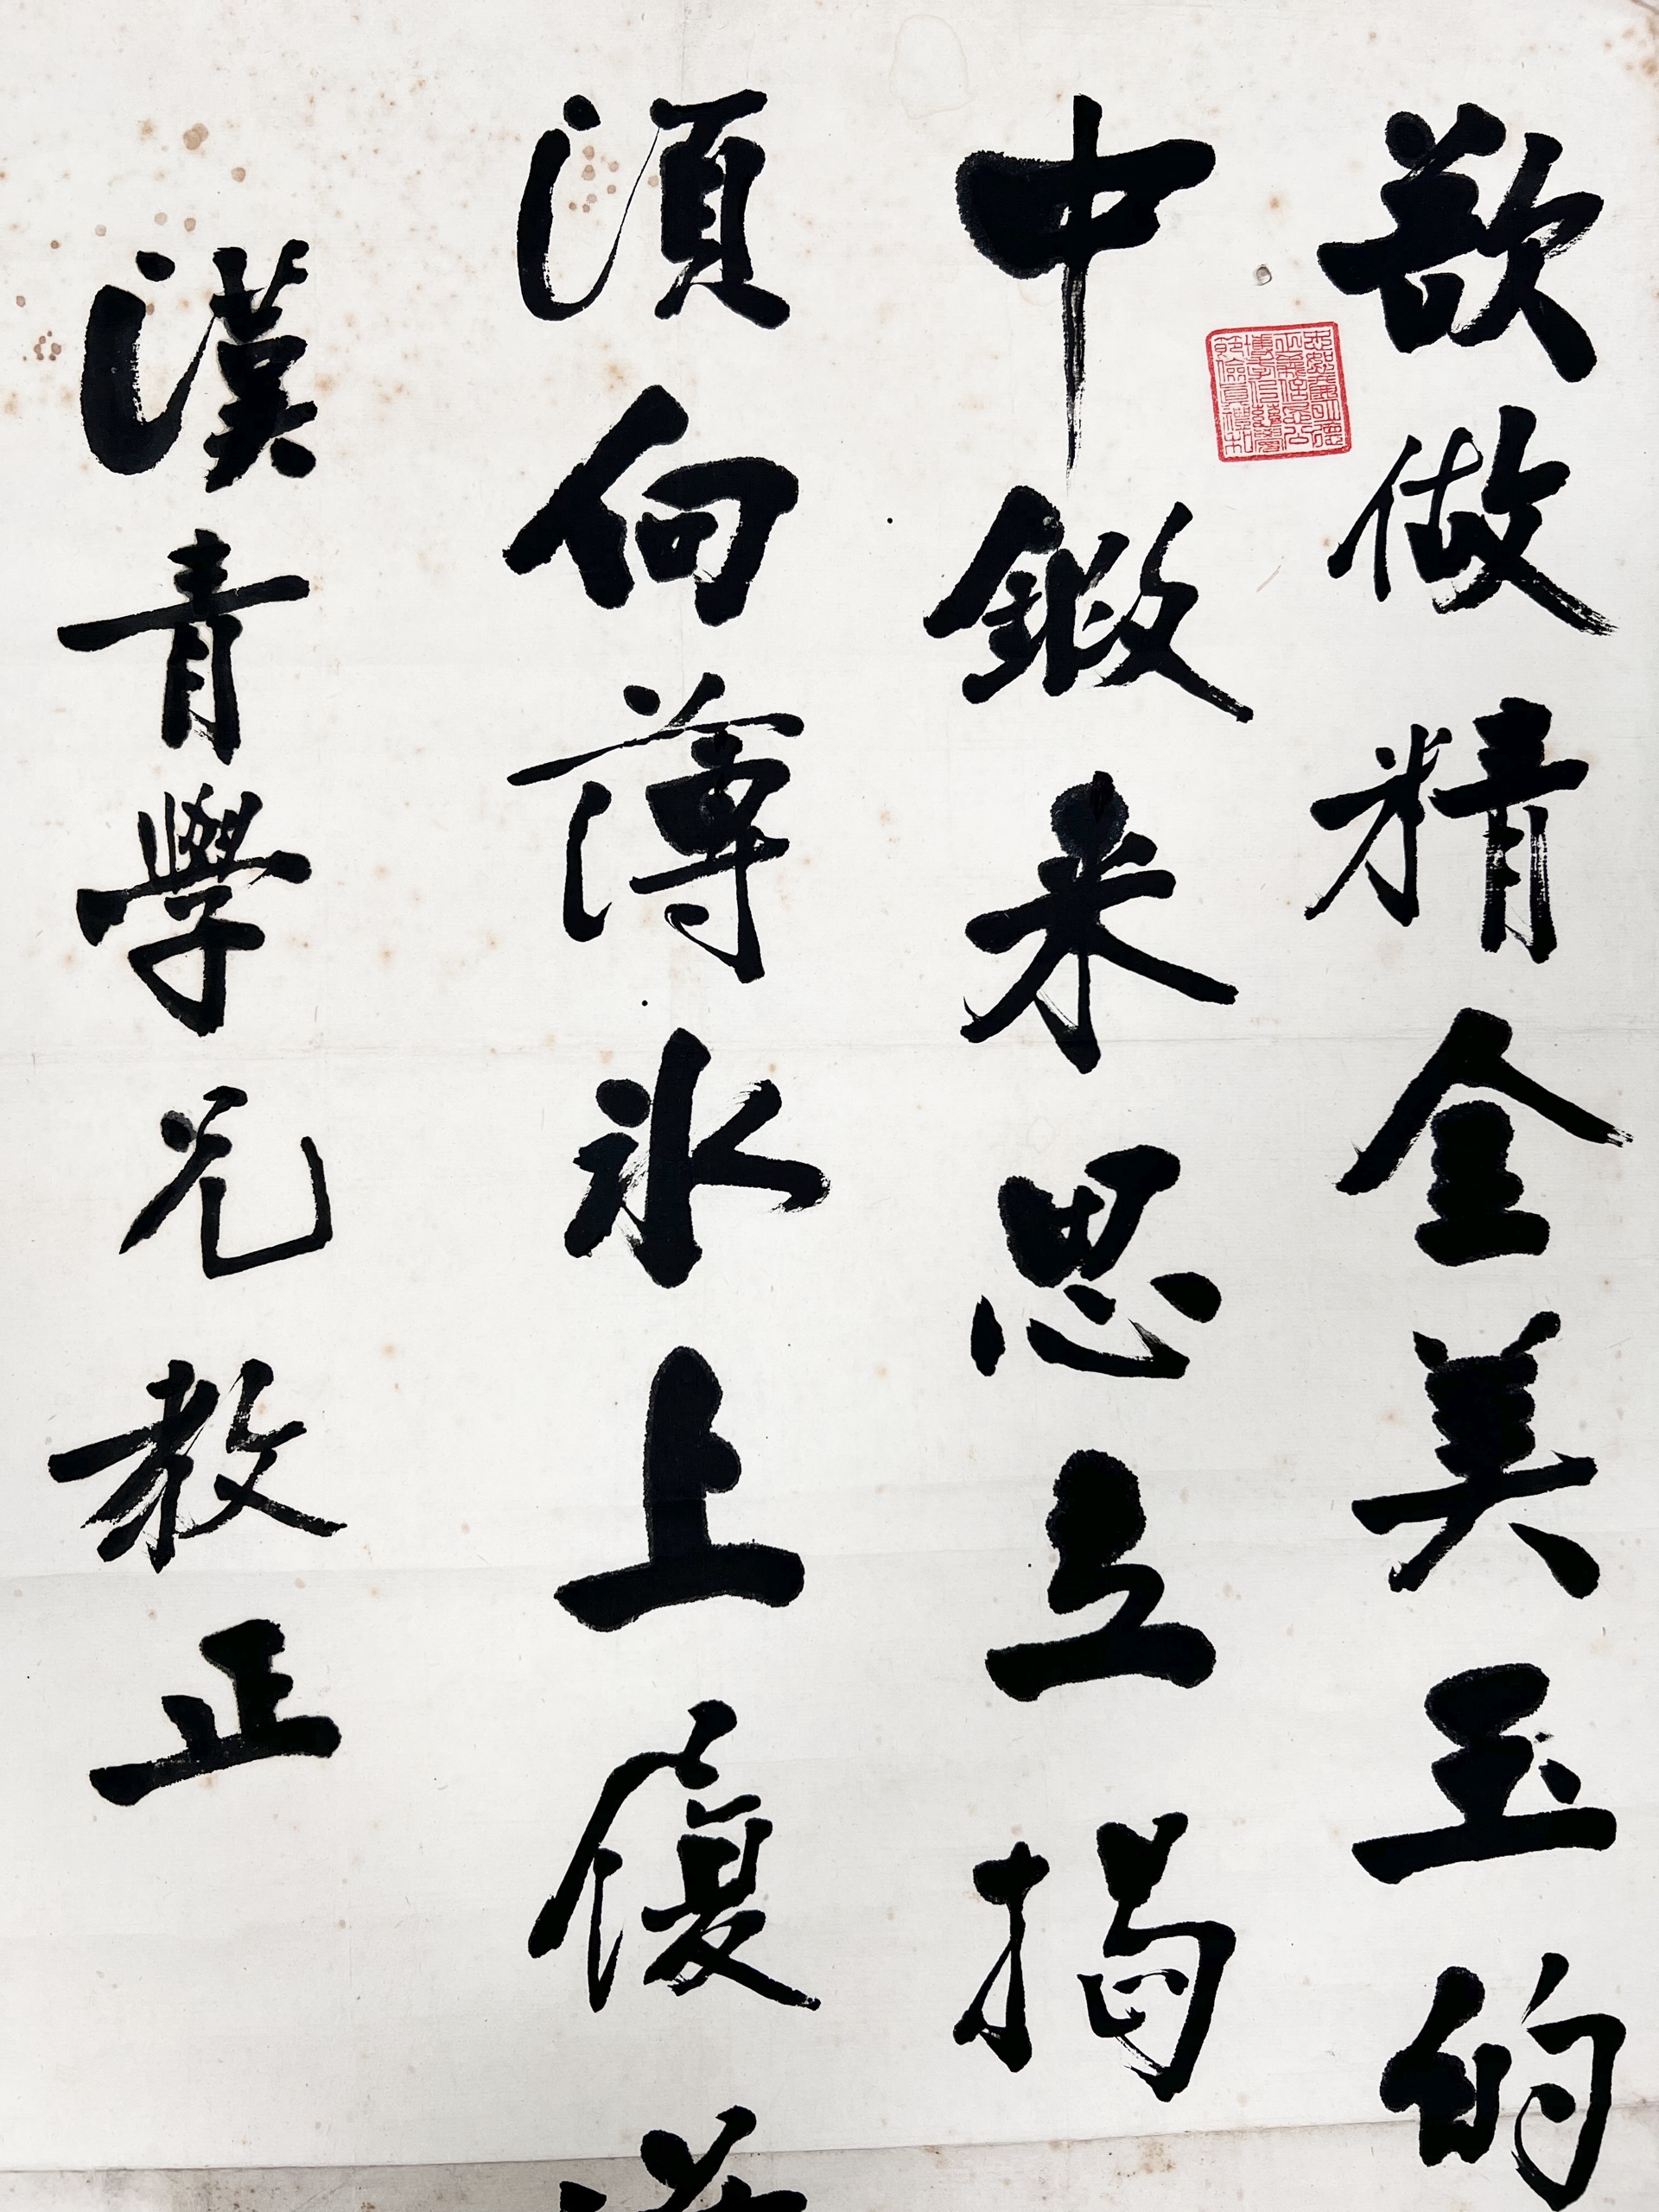 欲做精金美玉的
中鍛来思立揭
須向薄氷上履
漢青學兄教正